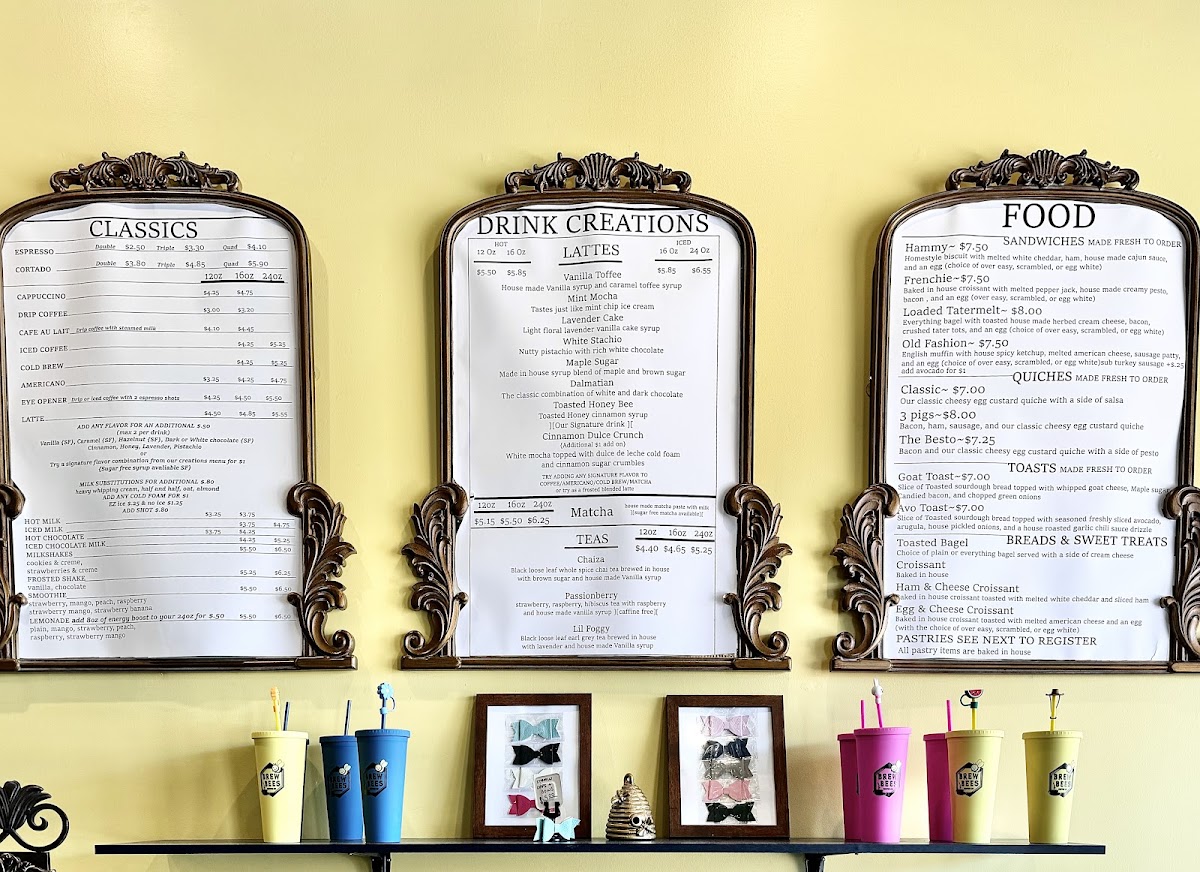 CLASSICS
ESPRESSO Double $2.50 Triple $3.30 Quad $4.10
CORTADO Double $3.80 Triple $4.85 Quad $5.90
12oz 16oz 24oz
CAPPUCCINO $4.25 $4.75
DRIP COFFEE $3.00 $3.20
CAFE AU LAIT Drip coffee with steamed milk $4.10 $4.45
ICED COFFEE $4.25 $5.25
COLD BREW $4.25 $5.25
AMERICANO $3.25 $4.25 $4.75
EYE OPENER Drip or Iced coffee with 2 espresso shots $4.25 $4.50 $5.50
LATTE $4.50 $4.85 $5.55
ADD ANY FLAVOR FOR AN ADDITIONAL $.50
(max 2 per drink)
Vanilla (SF), Caramel (SF), Hazelnut (SF), Dark or White chocolate (SF)
Cinnamon, Honey, Lavender, Pistachio
or
Try a signature flavor combination from our creations menu for $1
(Sugar free syrup available SF)
MILK SUBSTITUTIONS FOR ADDITIONAL $.80
heavy whipping cream, half and half, oat, almond
ADD ANY COLD FOAM FOR $1
EZ ice $.25 & no ice $1.25
ADD SHOT $.80
HOT MILK $3.25 $3.75
ICED MILK $3.75 $4.75
HOT CHOCOLATE $3.75 $4.25
ICED CHOCOLATE MILK $4.25 $5.25
MILKSHAKES $5.50 $6.50
cookies & creme,
strawberries & creme
FROSTED SHAKE $5.25 $6.25
vanilla, chocolate
SMOOTHIE $5.50 $6.50
strawberry, mango, peach, raspberry
strawberry mango, strawberry banana
LEMONADE add 8oz of energy boost to your 24oz for $.50 $5.50 $6.50
plain, mango, strawberry, peach,
raspberry, strawberry mango
DRINK CREATIONS
HOT
12 Oz 16 Oz
LATTES
ICED
16 Oz 24 Oz
$5.50 $5.85 $5.85 $6.55
Vanilla Toffee
House made Vanilla syrup and caramel toffee syrup
Mint Mocha
Tastes just like mint chip ice cream
Lavender Cake
Light floral lavender vanilla cake syrup
White Stachio
Nutty pistachio with rich white chocolate
Maple Sugar
Made in house syrup blend of maple and brown sugar
Dalmatian
The classic combination of white and dark chocolate
Toasted Honey Bee
Toasted Honey cinnamon syrup
][Our Signature drink ][
Cinnamon Dulce Crunch
(Additional $1 add on)
White mocha topped with dulce de leche cold foam
and cinnamon sugar crumbles
TRY ADDING ANY SIGNATURE FLAVOR TO
COFFEE/AMERICANO/COLD BREW/MATCHA
or try as a frosted blended latte
12oz 16oz 24oz
$5.15 $5.50 $6.25
Matcha
house made matcha paste with milk
][sugar free matcha available][
TEAS
12oz 16oz 24oz
$4.40 $4.65 $5.25
Chaiza
Black loose leaf whole spice chai tea brewed in house
with brown sugar and house made Vanilla syrup
Passionberry
strawberry, raspberry, hibiscus tea with raspberry
and house made vanilla syrup ][caffine free][
Lil Foggy
Black loose leaf earl grey tea brewed in house
with lavender and house made Vanilla syrup
FOOD
SANDWICHES MADE FRESH TO ORDER
Hammy~ $7.50
Homestyle biscuit with melted white cheddar, ham, house made cajun sauce,
and an egg (choice of over easy, scrambled, or egg white)
Frenchie~$7.50
Baked in house croissant with melted pepper jack, house made creamy pesto,
bacon , and an egg (over easy, scrambled, or egg white)
Loaded Tatermelt~ $8.00
Everything bagel with toasted house made herbed cream cheese, bacon,
crushed tater tots, and an egg (choice of over easy, scrambled, or egg white)
Old Fashion~ $7.50
English muffin with house spicy ketchup, melted american cheese, sausage patty,
and an egg (choice of over easy, scrambled, or egg white)sub turkey sausage +$.25
add avocado for $1
QUICHES MADE FRESH TO ORDER
Classic~ $7.00
Our classic cheesy egg custard quiche with a side of salsa
3 pigs~$8.00
Bacon, ham, sausage, and our classic cheesy egg custard quiche
The Besto~$7.25
Bacon and our classic cheesy egg custard quiche with a side of pesto
TOASTS MADE FRESH TO ORDER
Goat Toast~$7.00
Slice of Toasted sourdough bread topped with whipped goat cheese, Maple sugar
Candied bacon, and chopped green onions
Avo Toast~$7.00
Slice of Toasted sourdough bread topped with seasoned freshly sliced avocado,
arugula, house pickled onions, and a house roasted garlic chili sauce drizzle
BREADS & SWEET TREATS
Toasted Bagel
Choice of plain or everything bagel served with a side of cream cheese
Croissant
Baked in house
Ham & Cheese Croissant
Baked in house croissant toasted with melted white cheddar and sliced ham
Egg & Cheese Croissant
Baked in house croissant toasted with melted american cheese and an egg
(with the choice of over easy, scrambled, or egg white)
PASTRIES SEE NEXT TO REGISTER
All pastry items are baked in house
BREW
BEES
BREW
BEES
BREW
BEES
BREW
BEES
BREW
BEES
BREW
BEES